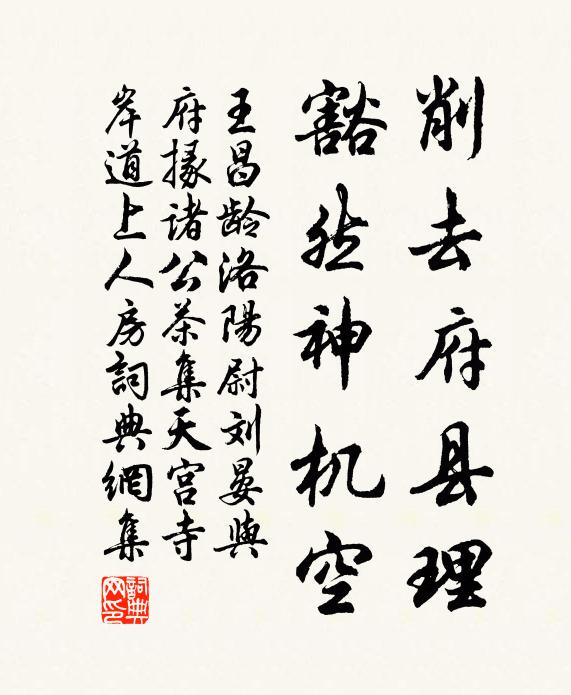 削去府县理
豁然神机空
王昌龄洛陽尉刘晏與
府掾諸公茶集天宮寺
岸道上人房詞典網集
詞典網印